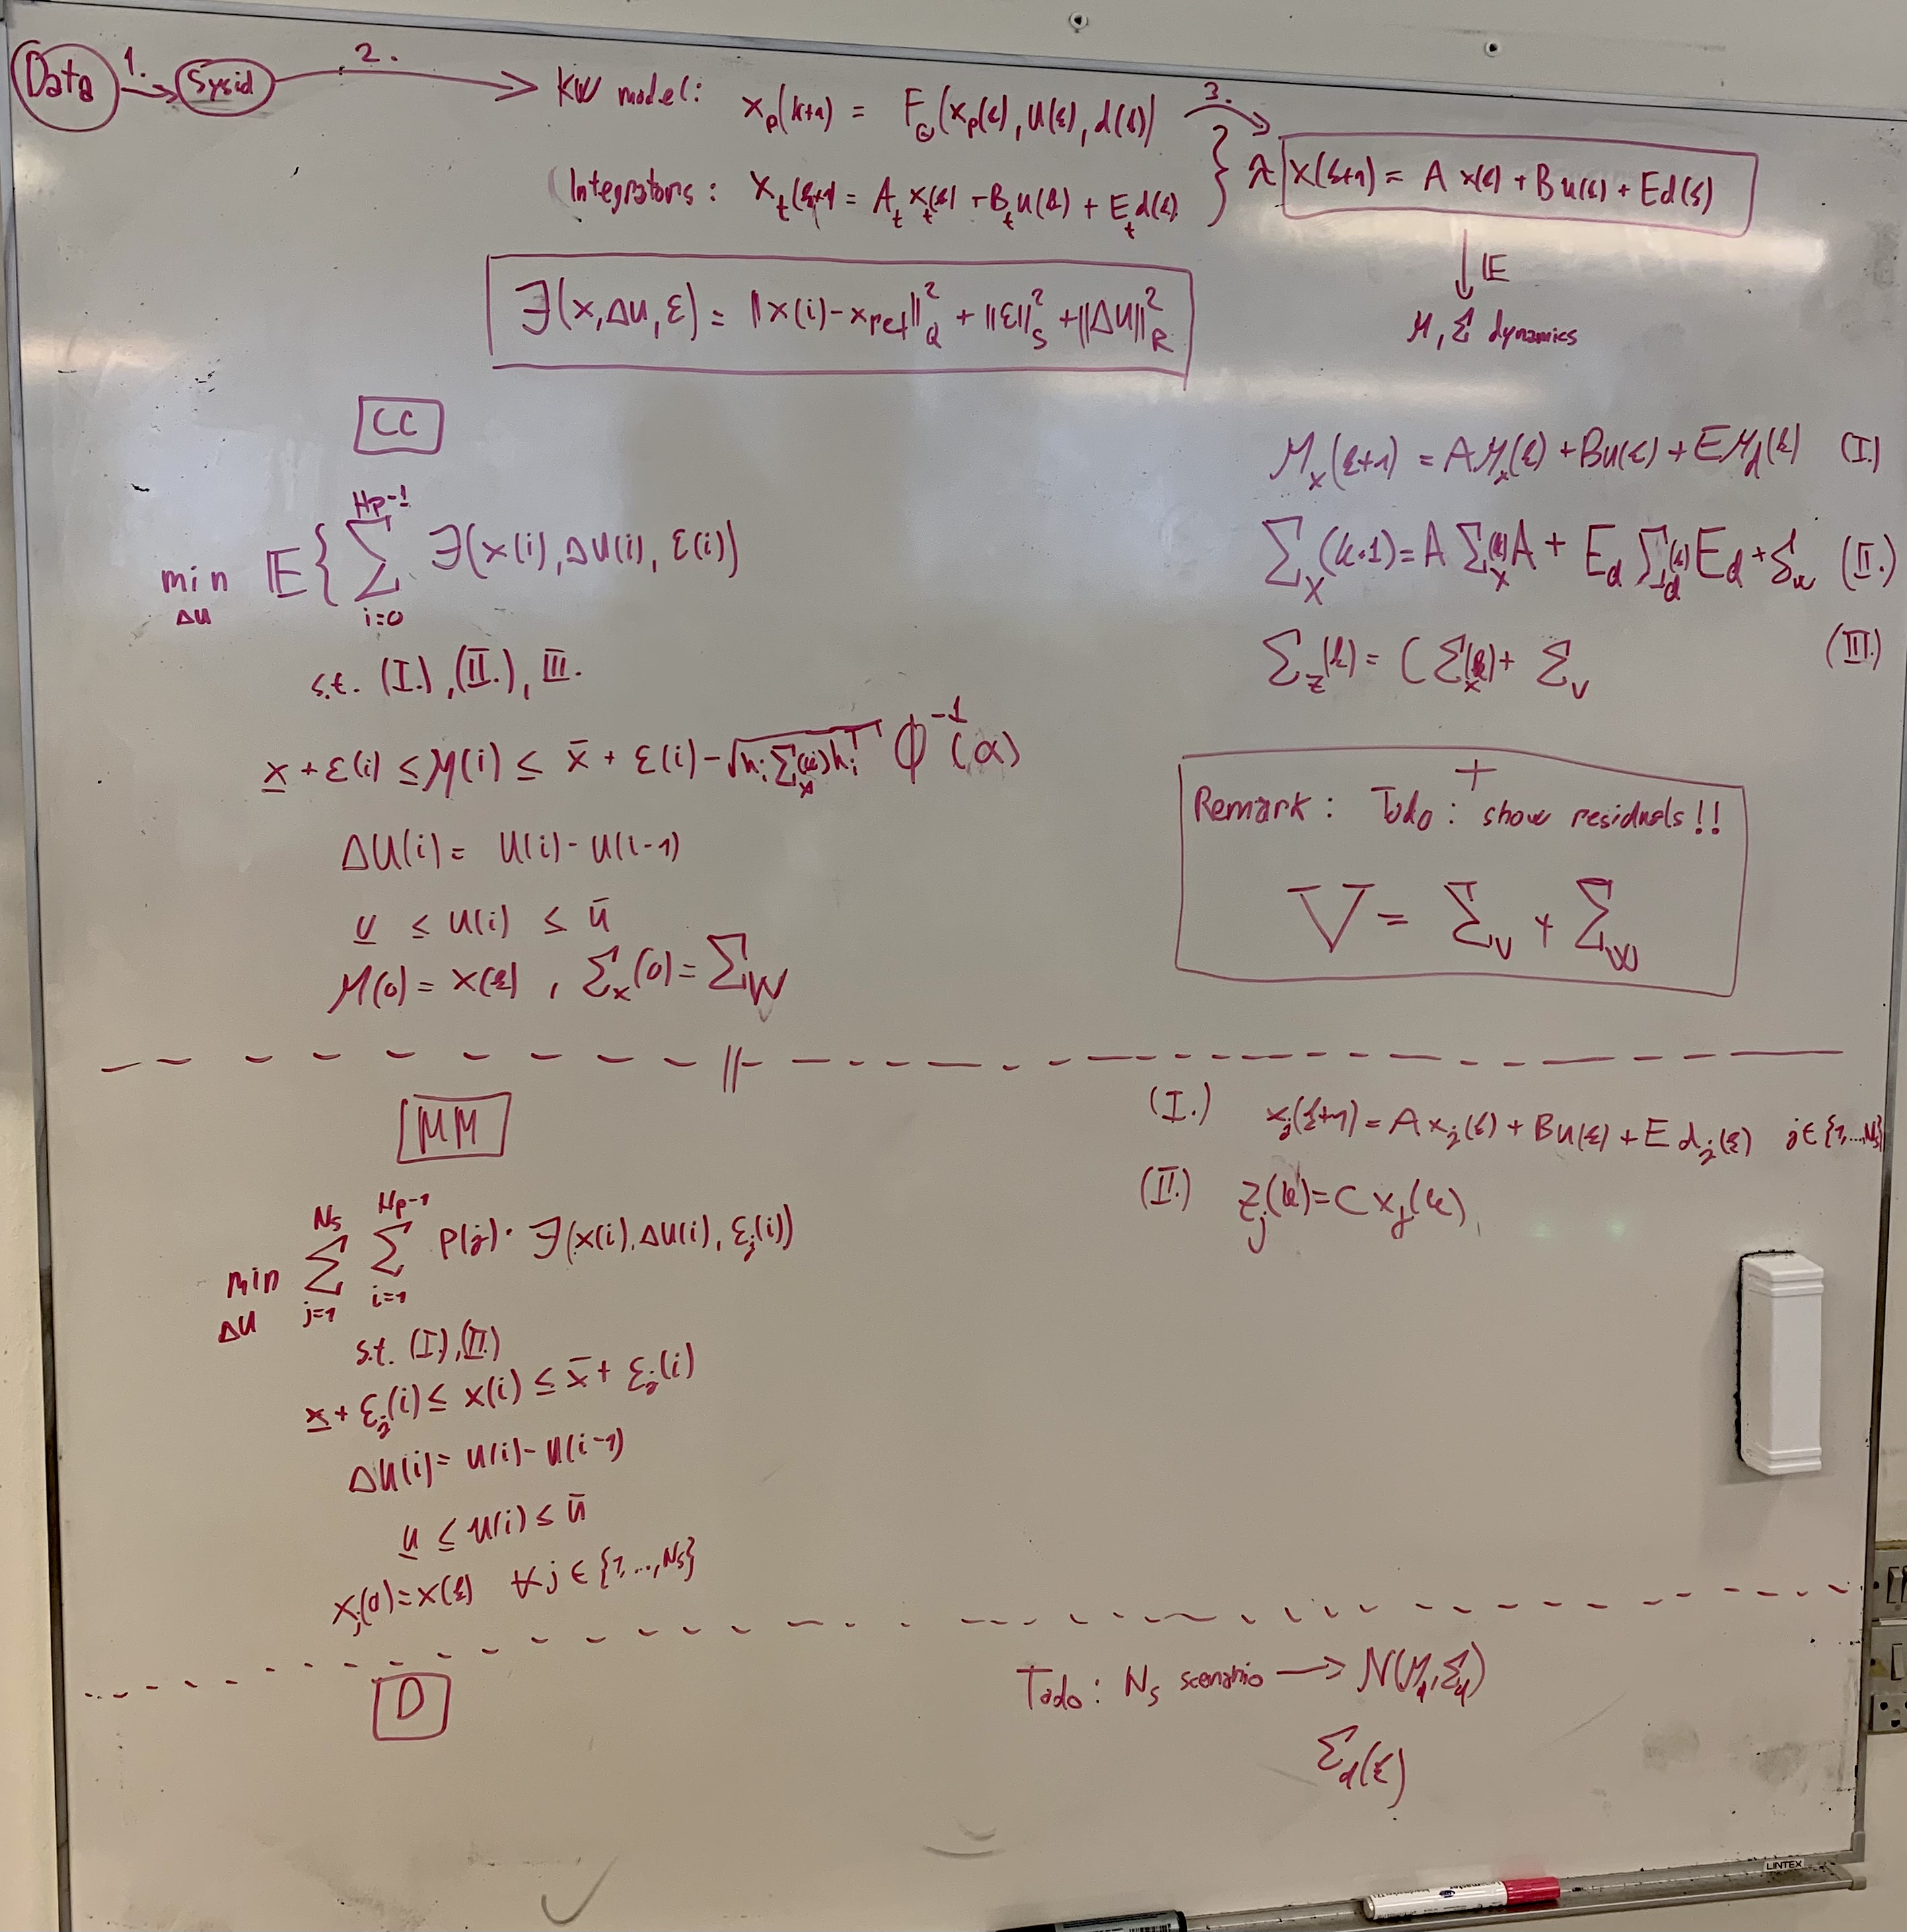 Data 1. Sysid 2. KW model: x_p(k+1) = F_Θ(x_p(k), u(k), d(k)) 3.
Integrators: x_t(k+1) = A_t x_t(k) + B_t u(k) + E_t d(k) } x(k+1) = A x(k) + B u(k) + E d(k)
𝔼
μ, Σ dynamics
J(x, Δu, ε) = ||x(i) - x_ref||²_Q + ||ε||²_S + ||Δu||²_R
CC
min_Δu 𝔼{ Σ_{i=0}^{Hp-1} J(x(i), Δu(i), ε(i))
s.t. (I.), (II.), III.
x̲ + ε(i) ≤ μ(i) ≤ x̄ + ε(i) - √(h_i Σ_x(i) h_i^T) Φ^{-1}(α)
Δu(i) = u(i) - u(i-1)
u̲ ≤ u(i) ≤ ū
μ(0) = x(k), Σ_x(0) = Σ_W
μ_x(k+1) = A μ_x(k) + B u(k) + E μ_d(k) (I.)
Σ_x(k+1) = A Σ_x(k) A + E_d Σ_d(k) E_d + Σ_w (II.)
Σ_z(k) = C Σ_x(k) + Σ_v (III.)
+
Remark: Todo: show residuals!!
V = Σ_v + Σ_W
MM
min_Δu Σ_{j=1}^{Ns} Σ_{i=1}^{Hp-1} p(j) · J(x(i), Δu(i), ε_j(i))
s.t. (I.), (II.)
x̲ + ε_j(i) ≤ x(i) ≤ x̄ + ε_j(i)
Δu(i) = u(i) - u(i-1)
u̲ ≤ u(i) ≤ ū
x_j(0) = x(k) ∀ j ∈ {1, ..., Ns}
(I.) x_j(k+1) = A x_j(k) + B u(k) + E d_j(k) j ∈ {1, ..., Ns}
(II.) z_j(k) = C x_j(k)
D
Todo: Ns scenario → N(μ_d, Σ_d)
Σ_d(k)
LINTEX